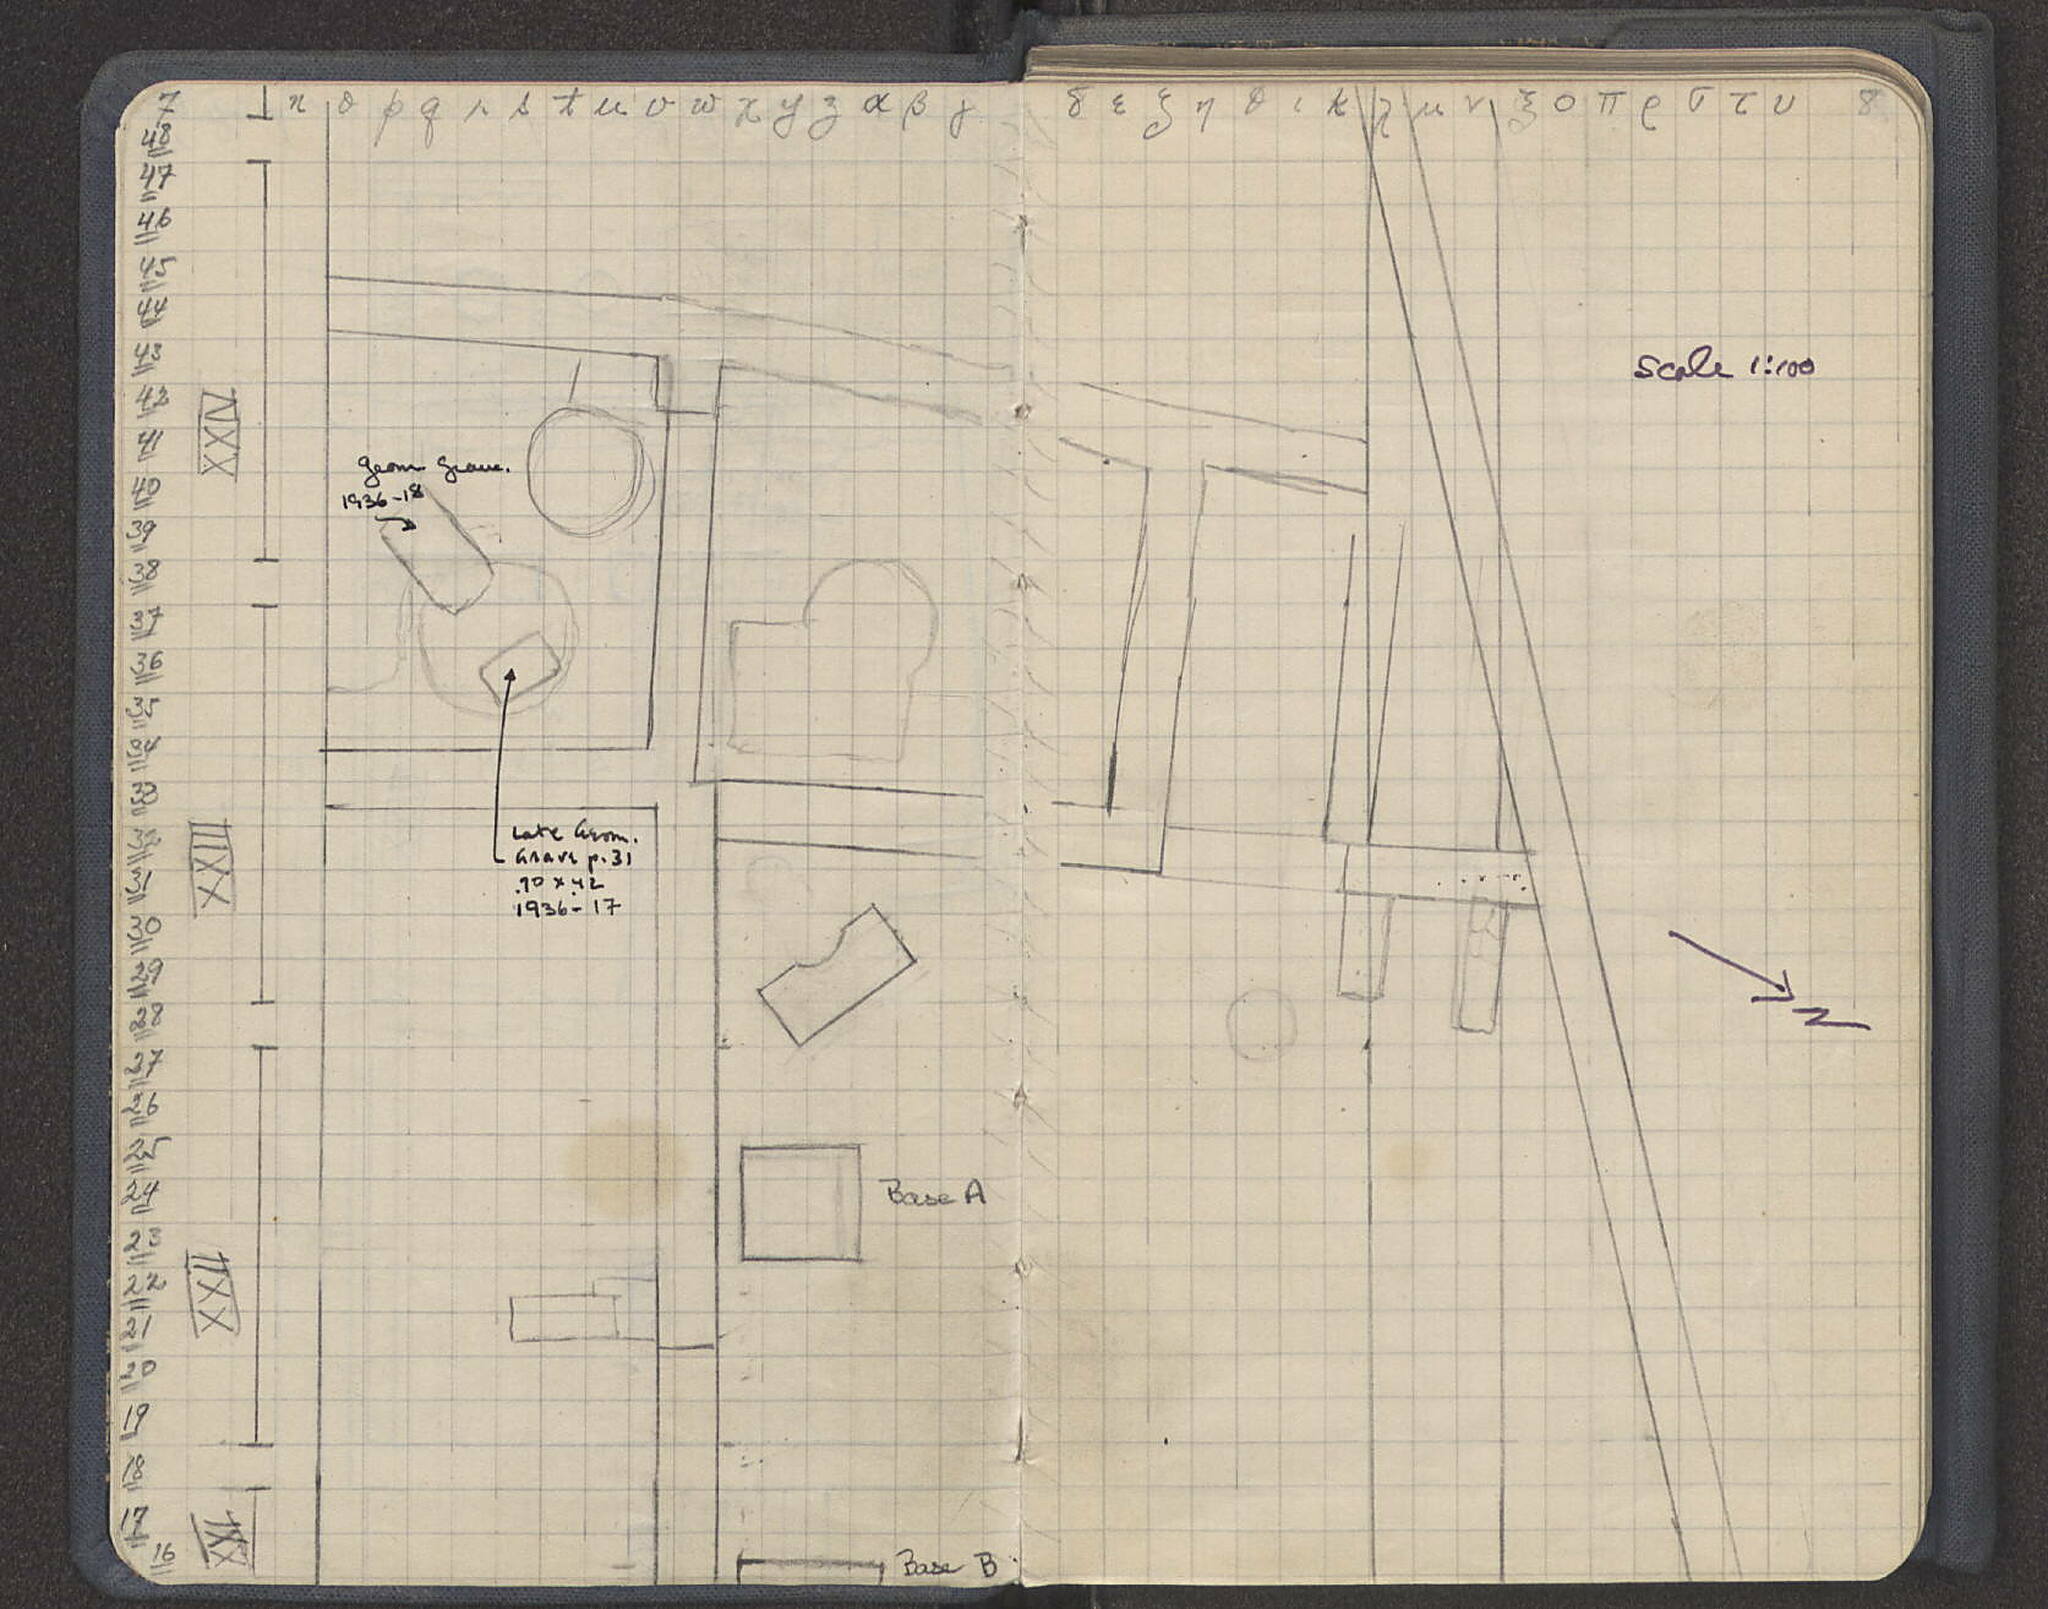 7 n o p q r s t u v w x y z α β γ δ ε ζ η θ ι κ λ μ ν ξ ο π ρ σ τ υ 8
48
47
46
45
44
43
42
41
40
39
38
37
36
35
34
33
32
31
30
29
28
27
26
25
24
23
22
21
20
19
18
17
16
XXIV
XXIII
XXII
XXI
Scale 1:100
Geom Grave.
1936-18
Late Geom.
Grave p. 31
.70 x .42
1936-17
N
Base A
Base B